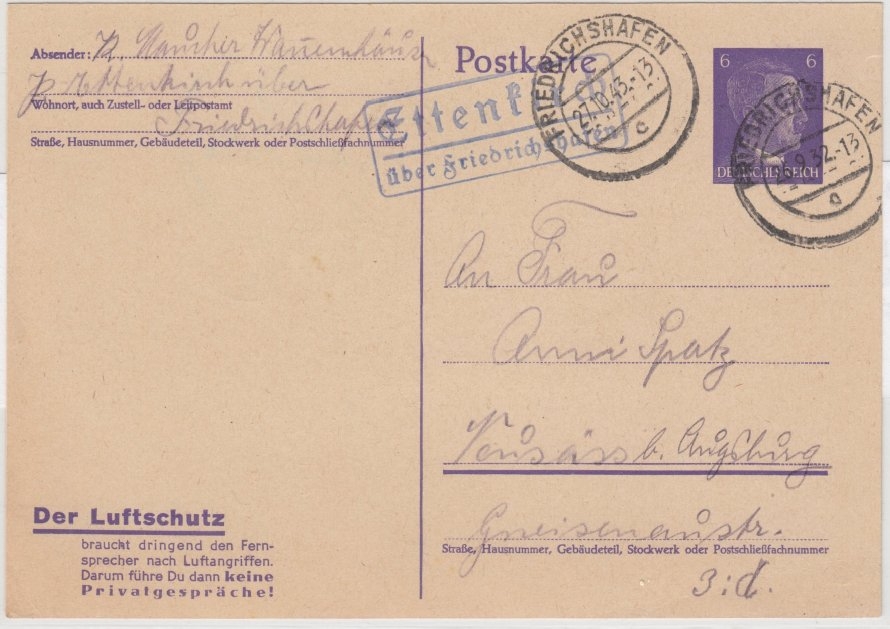 Absender: Maucher
Ettenkirch über
Wohnort, auch Zustell- oder Leitpostamt
Friedrichshafen
Straße, Hausnummer, Gebäudeteil, Stockwerk oder Postschließfachnummer
Postkarte
Ettenkirch
über Friedrichshafen
FRIEDRICHSHAFEN
27.10.43.-13
c
6 6
DEUTSCHES REICH
FRIEDRICHSHAFEN
.9.32.-13
An Frau
Anni Spatz
Neusäss b. Augsburg
Gneisenaustr.
Straße, Hausnummer, Gebäudeteil, Stockwerk oder Postschließfachnummer
Der Luftschutz
braucht dringend den Fern-
sprecher nach Luftangriffen.
Darum führe Du dann keine
Privatgespräche!